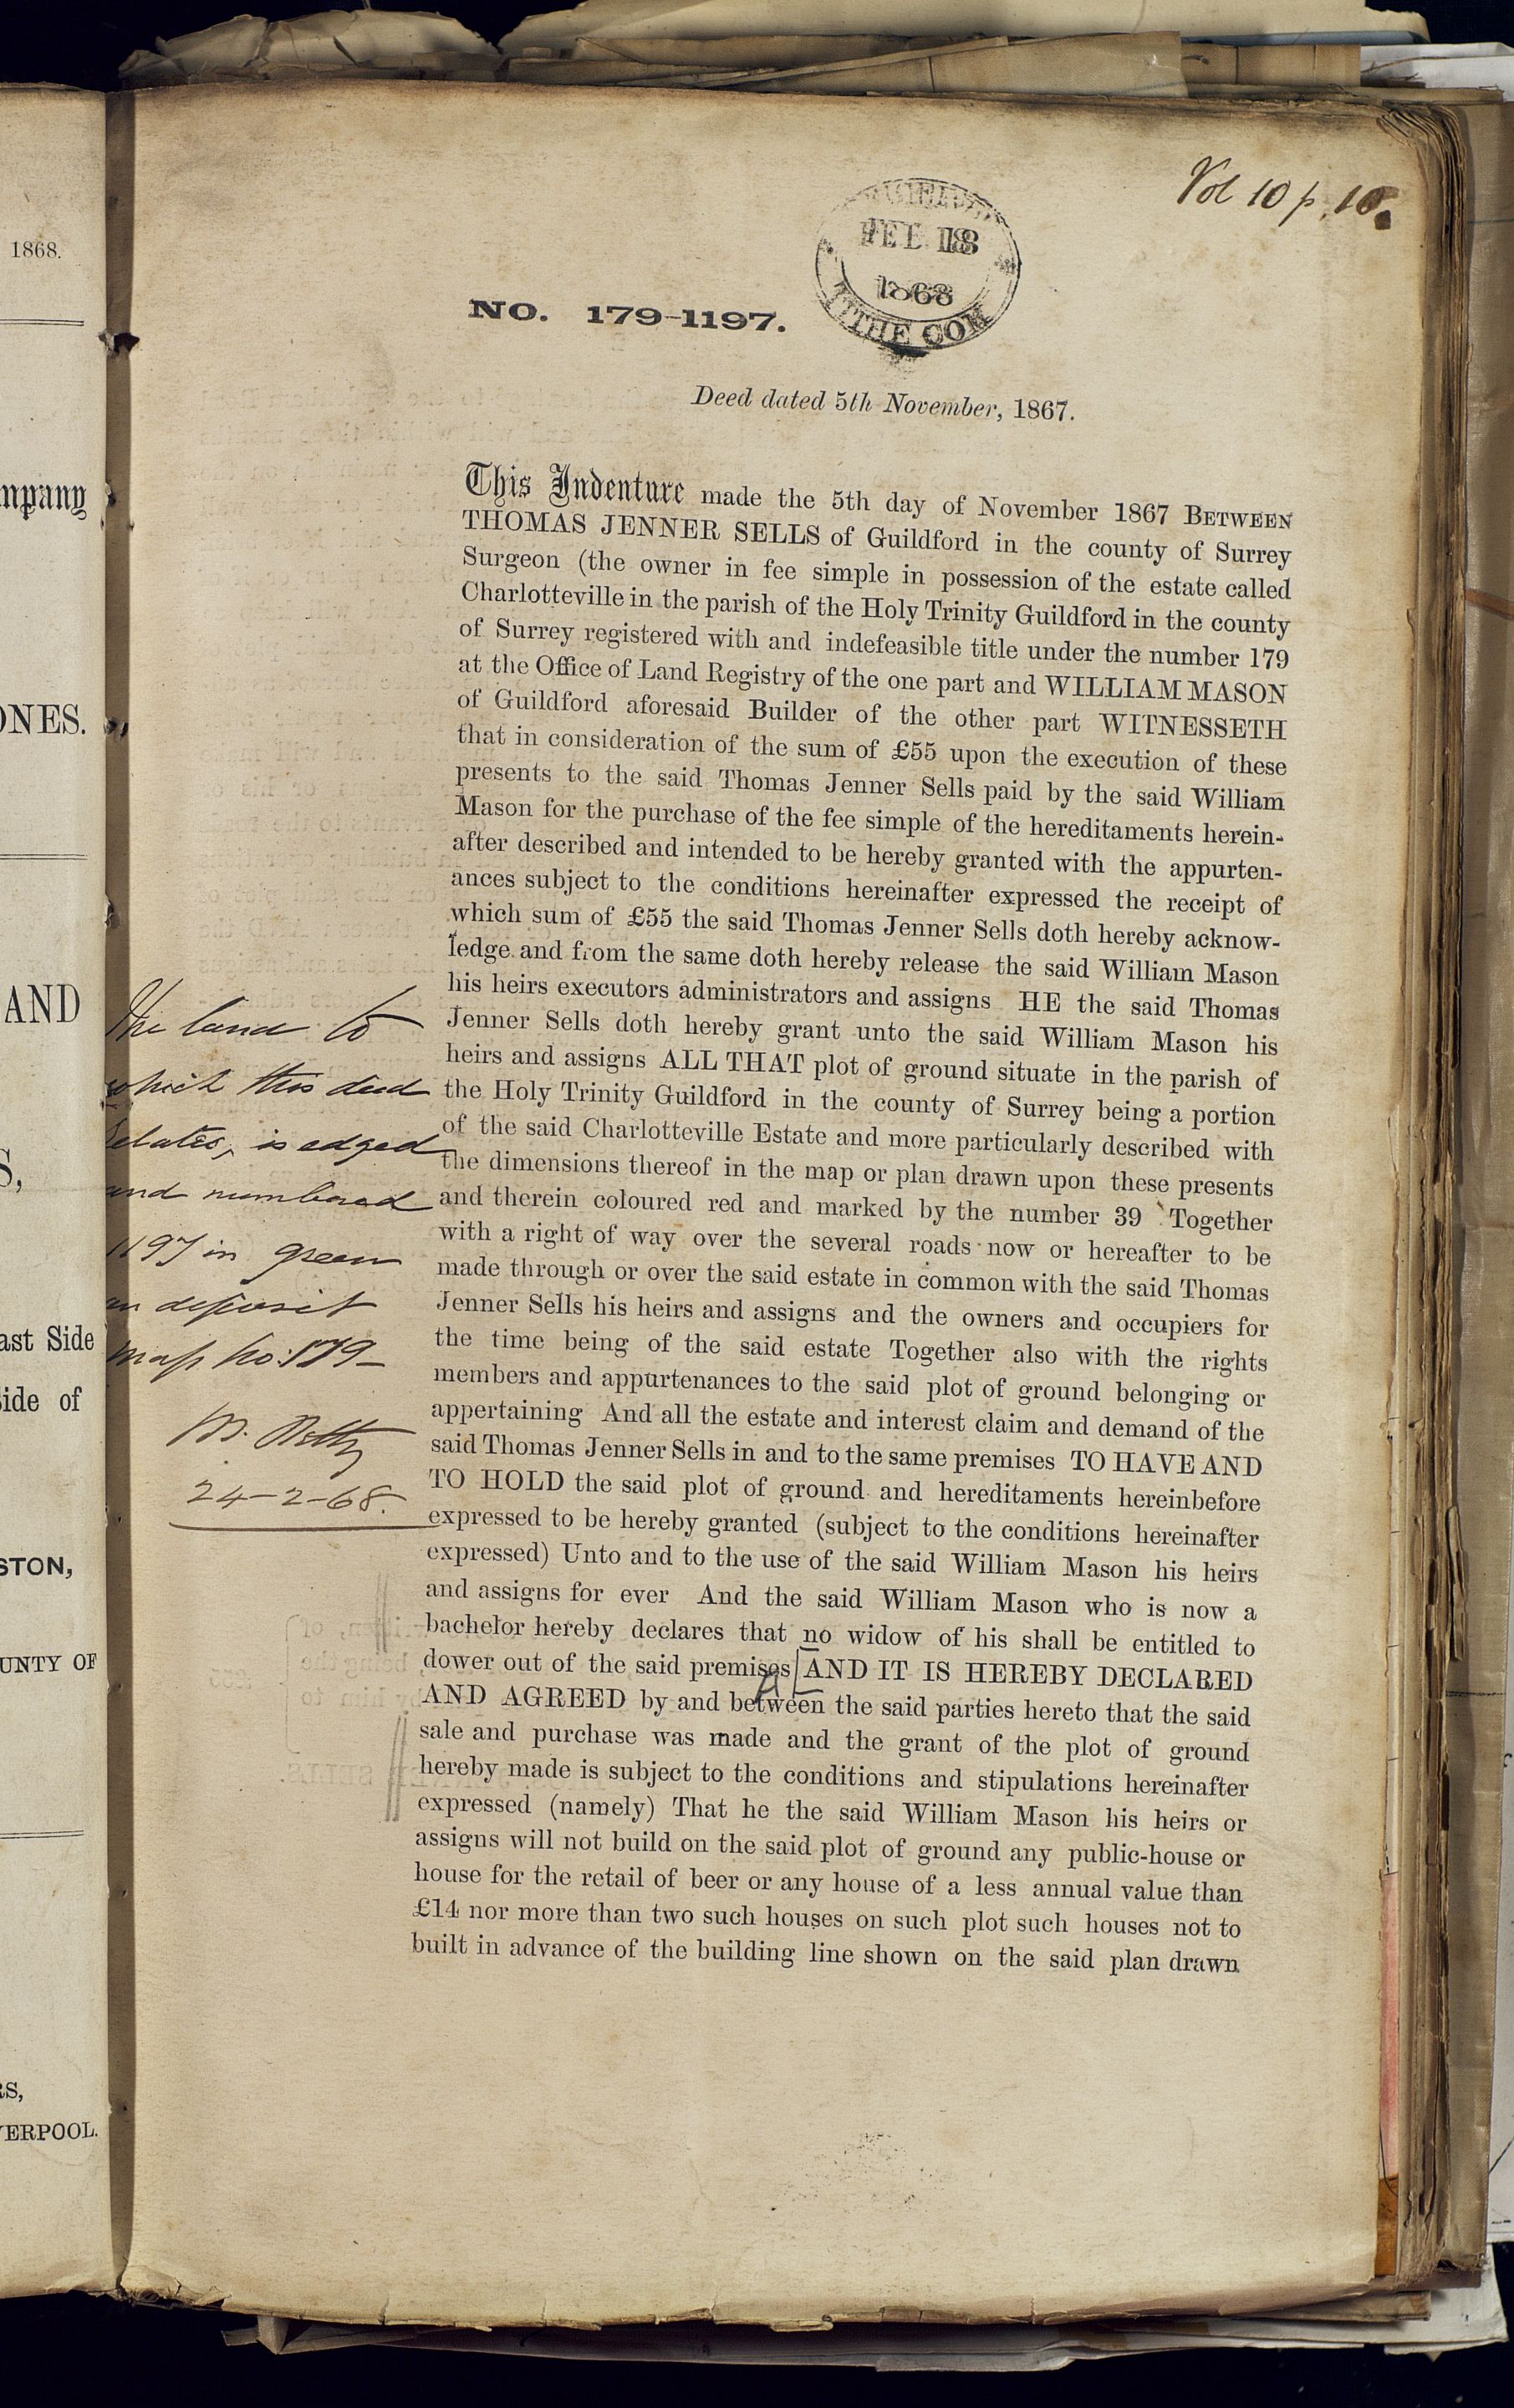 1868.
mpany
ONES.
AND
S,
ast Side
ide of
STON,
UNTY OF
RS,
VERPOOL.
Vol 10 p. 10.
FEB 18
1868
TITHE COM
NO. 179-1197.
Deed dated 5th November, 1867.
This Indenture made the 5th day of November 1867 BETWEEN
THOMAS JENNER SELLS of Guildford in the county of Surrey
Surgeon (the owner in fee simple in possession of the estate called
Charlotteville in the parish of the Holy Trinity Guildford in the county
of Surrey registered with and indefeasible title under the number 179
at the Office of Land Registry of the one part and WILLIAM MASON
of Guildford aforesaid Builder of the other part WITNESSETH
that in consideration of the sum of £55 upon the execution of these
presents to the said Thomas Jenner Sells paid by the said William
Mason for the purchase of the fee simple of the hereditaments herein-
after described and intended to be hereby granted with the appurten-
ances subject to the conditions hereinafter expressed the receipt of
which sum of £55 the said Thomas Jenner Sells doth hereby acknow-
ledge and from the same doth hereby release the said William Mason
his heirs executors administrators and assigns HE the said Thomas
Jenner Sells doth hereby grant unto the said William Mason his
heirs and assigns ALL THAT plot of ground situate in the parish of
the Holy Trinity Guildford in the county of Surrey being a portion
of the said Charlotteville Estate and more particularly described with
the dimensions thereof in the map or plan drawn upon these presents
and therein coloured red and marked by the number 39 Together
with a right of way over the several roads now or hereafter to be
made through or over the said estate in common with the said Thomas
Jenner Sells his heirs and assigns and the owners and occupiers for
the time being of the said estate Together also with the rights
members and appurtenances to the said plot of ground belonging or
appertaining And all the estate and interest claim and demand of the
said Thomas Jenner Sells in and to the same premises TO HAVE AND
TO HOLD the said plot of ground and hereditaments hereinbefore
expressed to be hereby granted (subject to the conditions hereinafter
expressed) Unto and to the use of the said William Mason his heirs
and assigns for ever And the said William Mason who is now a
bachelor hereby declares that no widow of his shall be entitled to
dower out of the said premises [AND IT IS HEREBY DECLARED
AND AGREED by and between the said parties hereto that the said
sale and purchase was made and the grant of the plot of ground
hereby made is subject to the conditions and stipulations hereinafter
expressed (namely) That he the said William Mason his heirs or
assigns will not build on the said plot of ground any public-house or
house for the retail of beer or any house of a less annual value than
£14 nor more than two such houses on such plot such houses not to
built in advance of the building line shown on the said plan drawn
The land to
which this deed
relates, is edged
and numbered
1197 in green
on deposit
map No: 179-
24-2-68.